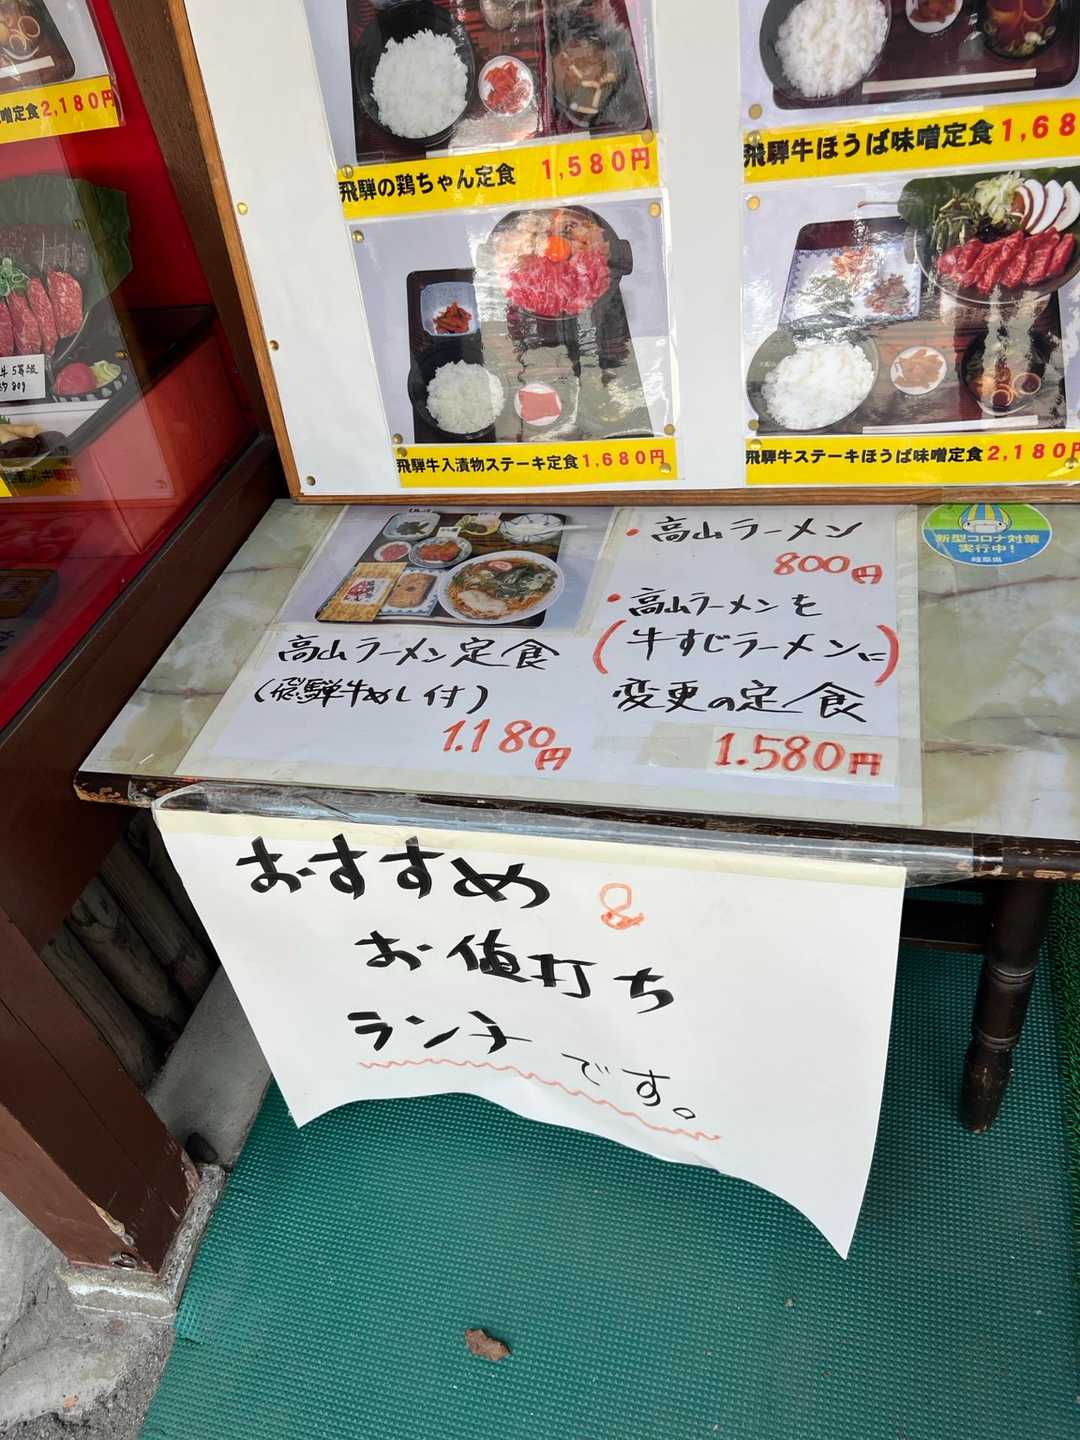 噌定食2,180円
飛騨の鶏ちゃん定食 1,580円
飛騨牛ほうば味噌定食1,68
飛騨牛入漬物ステーキ定食1,680円
飛騨牛ステーキほうば味噌定食2,180円
牛 5等級
約80g
高山ラーメン定食
(飛騨牛めし付)
1.180円
・高山ラーメン
800円
・高山ラーメンを
(牛すじラーメンに)
変更の定食
1.580円
新型コロナ対策
実行中!
岐阜県
おすすめ &
お値打ち
ランチです。